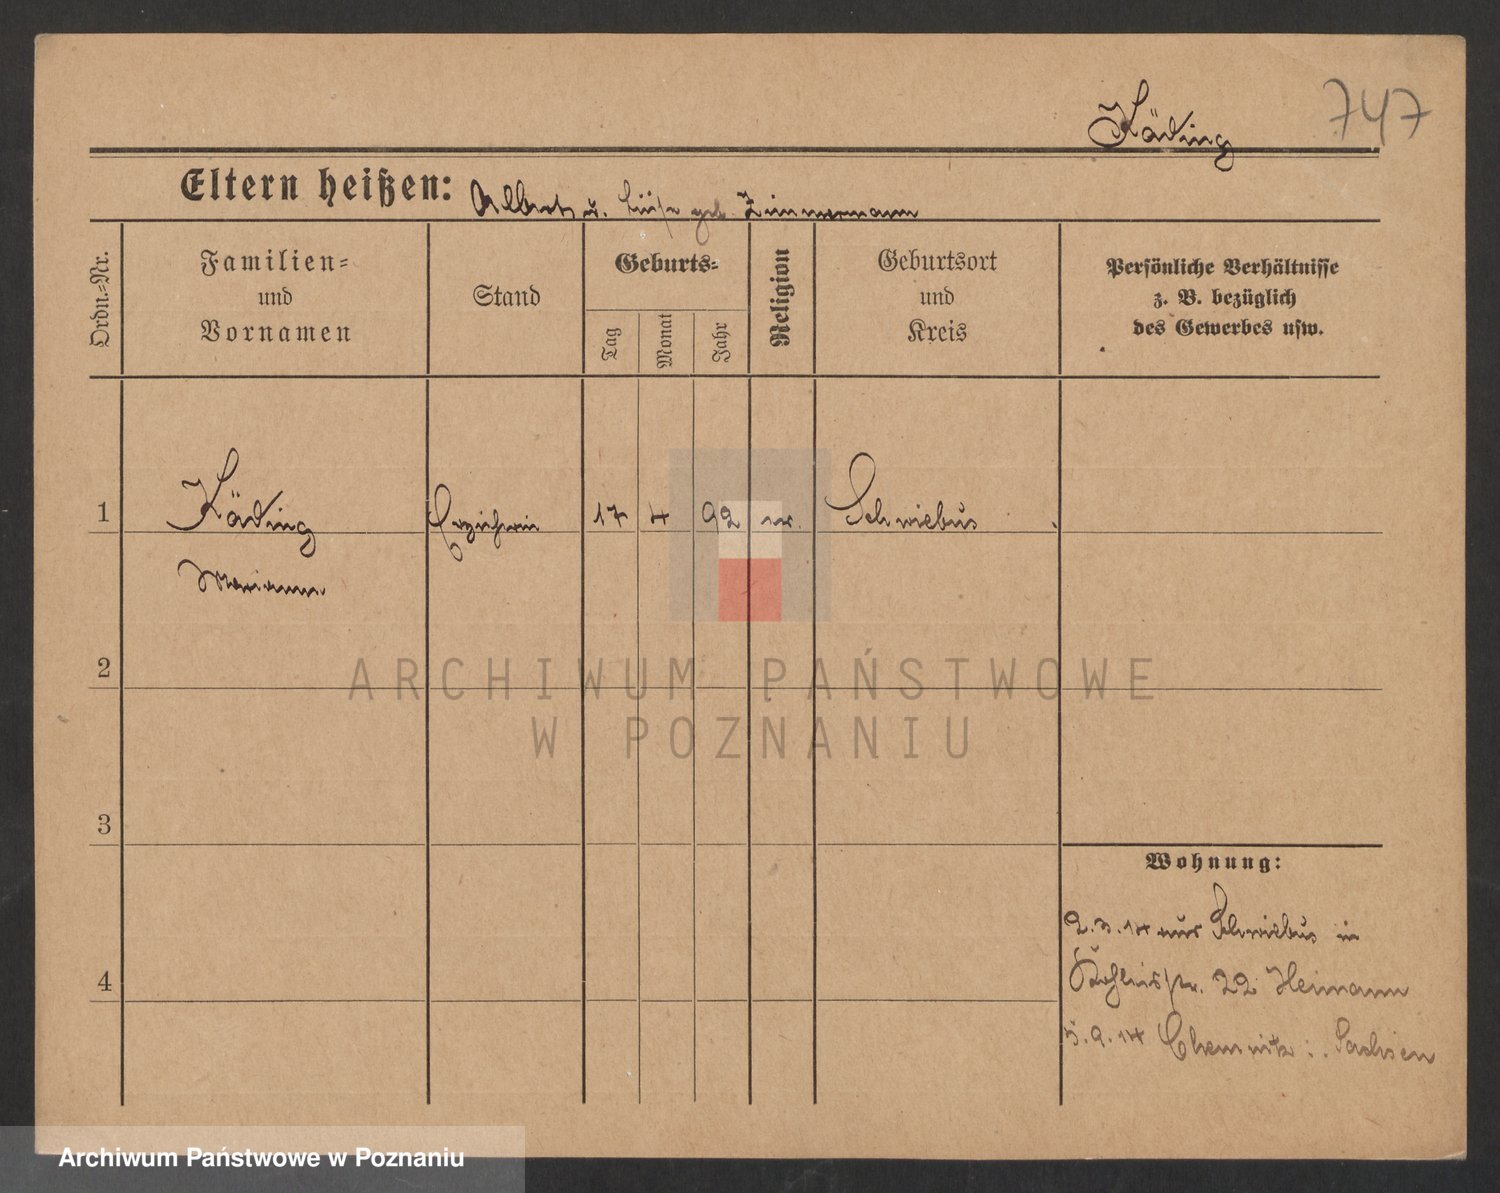 Käding 747
Eltern heißen: Albert u. Luise geb. Zimmermann
Ordn.-Nr.
Familien-
und
Vornamen
Stand
Geburts-
Tag
Monat
Jahr
Religion
Geburtsort
und
Kreis
Persönliche Verhältnisse
z. B. bezüglich
des Gewerbes usw.
1 Käding Erzieherin 17 4 92 ev. Schwiebus
Marianne
2
ARCHIWUM PAŃSTWOWE
W POZNANIU
3
Wohnung:
2.3.14 aus Schwiebus in
22 Heimann
4
5.9.14 Chemnitz i. Sachsen
Archiwum Państwowe w Poznaniu